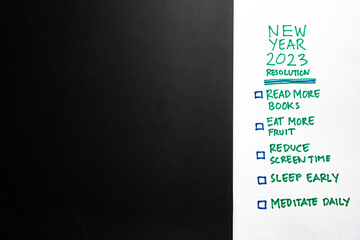 NEW
YEAR
2023
RESOLUTION
READ MORE
BOOKS
EAT MORE
FRUIT
REDUCE
SCREEN TIME
SLEEP EARLY
MEDITATE DAILY